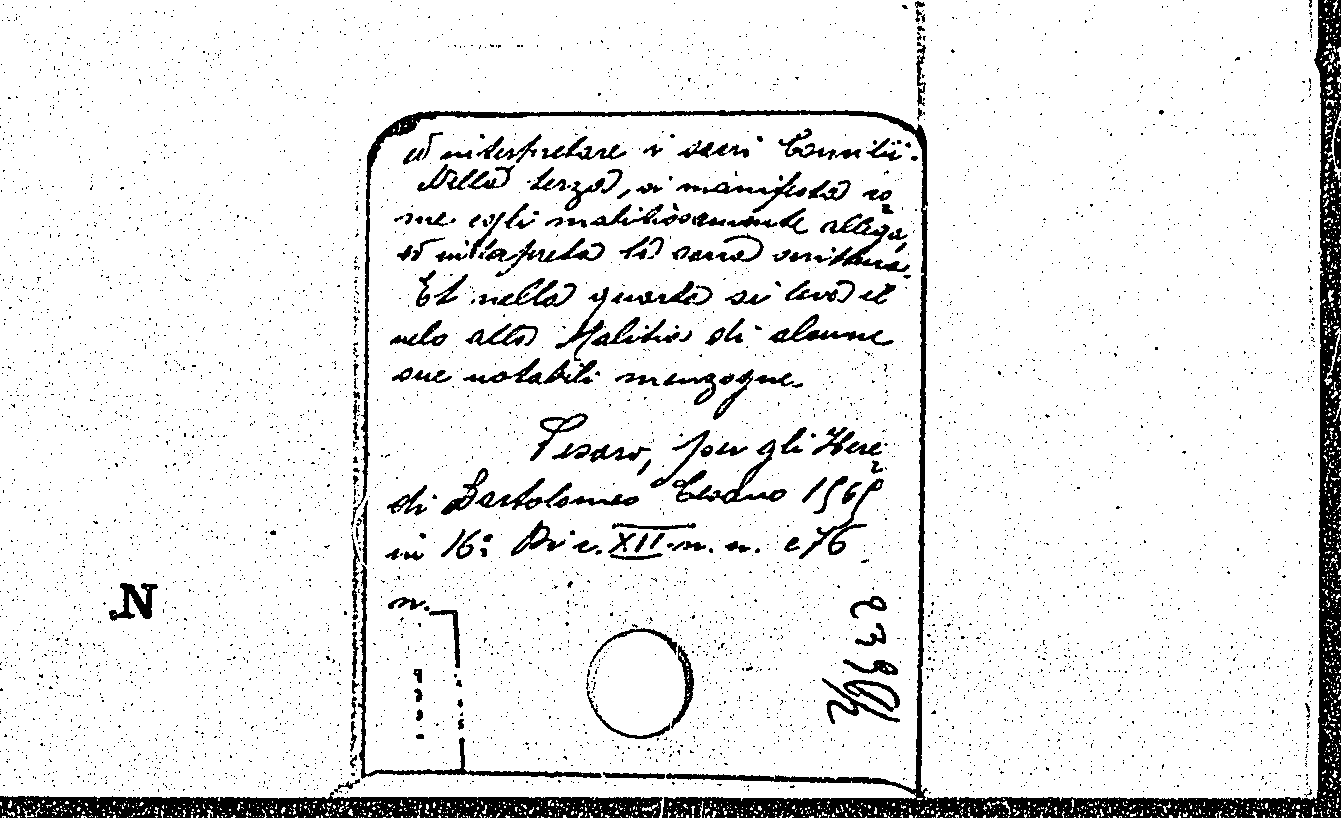 et interpretare i sacri Concilii.
Nella terza, si manifesta co=
me egli malitiosamente allega,
et interpreta la sacra scrittura.
Et nella quarta si leva il
velo alla Malitia di alcune
sue notabili menzogne.
Pesaro, per gli Here=
di Bartolomeo Cesano 156
in 16º
XII
N